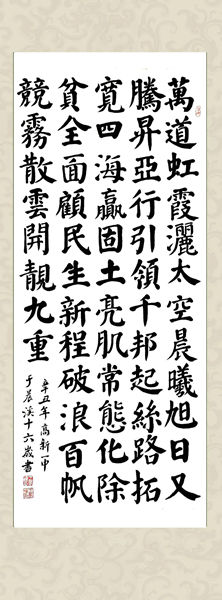 萬道虹霞灑太空晨曦旭日又
騰昇亞行引領千邦起絲路拓
寬四海贏固土亮肌常態化除
貧全面顧民生新程破浪百帆
競霧散雲開靚九重
辛丑年高新一中
于晨溪十六歲書